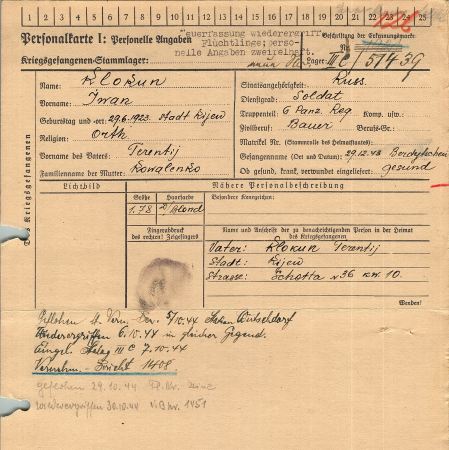 1 2 3 4 5 6 7 8 9 10 11 12 13 14 15 16 17 18 19 20 21 22 23 24 25
Personalkarte I: Personelle Angaben
Neuerfassung wiederergriff
Flüchtlinge; perso-
nelle Angaben zweifelhaft.
Beschriftung der Erkennungsmarke:
Nr.
Kriegsgefangenen-Stammlager:
Lager III C / 51439
Des Kriegsgefangenen
Name: Klokun
Vorname: Iwan
Geburtstag und -ort: 29.6.1923. Stadt Kijew
Religion: Orth.
Vorname des Vaters: Terentij
Familienname der Mutter: Kowalenko
Staatsangehörigkeit: Russ.
Dienstgrad: Soldat
Truppenteil: 6 Panz. Reg. Komp. usw.:
Zivilberuf: Bauer Berufs-Gr.:
Matrikel Nr. (Stammrolle des Heimatstaates):
Gefangennahme (Ort und Datum): 29.12.43
Ob gesund, krank, verwundet eingeliefert: gesund
Lichtbild
Nähere Personalbeschreibung
Größe
Haarfarbe
Besondere Kennzeichen:
1.78
D/blond
Fingerabdruck
des rechten! Zeigefingers
Name und Anschrift der zu benachrichtigenden Person in der Heimat
des Kriegsgefangenen
Vater: Klokun Terentij
Stadt: Kijew
Strasse: Schotta N 36 kw. 10.
Wenden!
Geflohen 5/10.44
Wiederergriffen 6.10.44 in gleicher Gegend.
Eingel. Stalag III C 7.10.44
Vernehm.-Bericht 1408
geflohen 29.10.44
wiederergriffen 30.10.44 V.B Nr. 1451